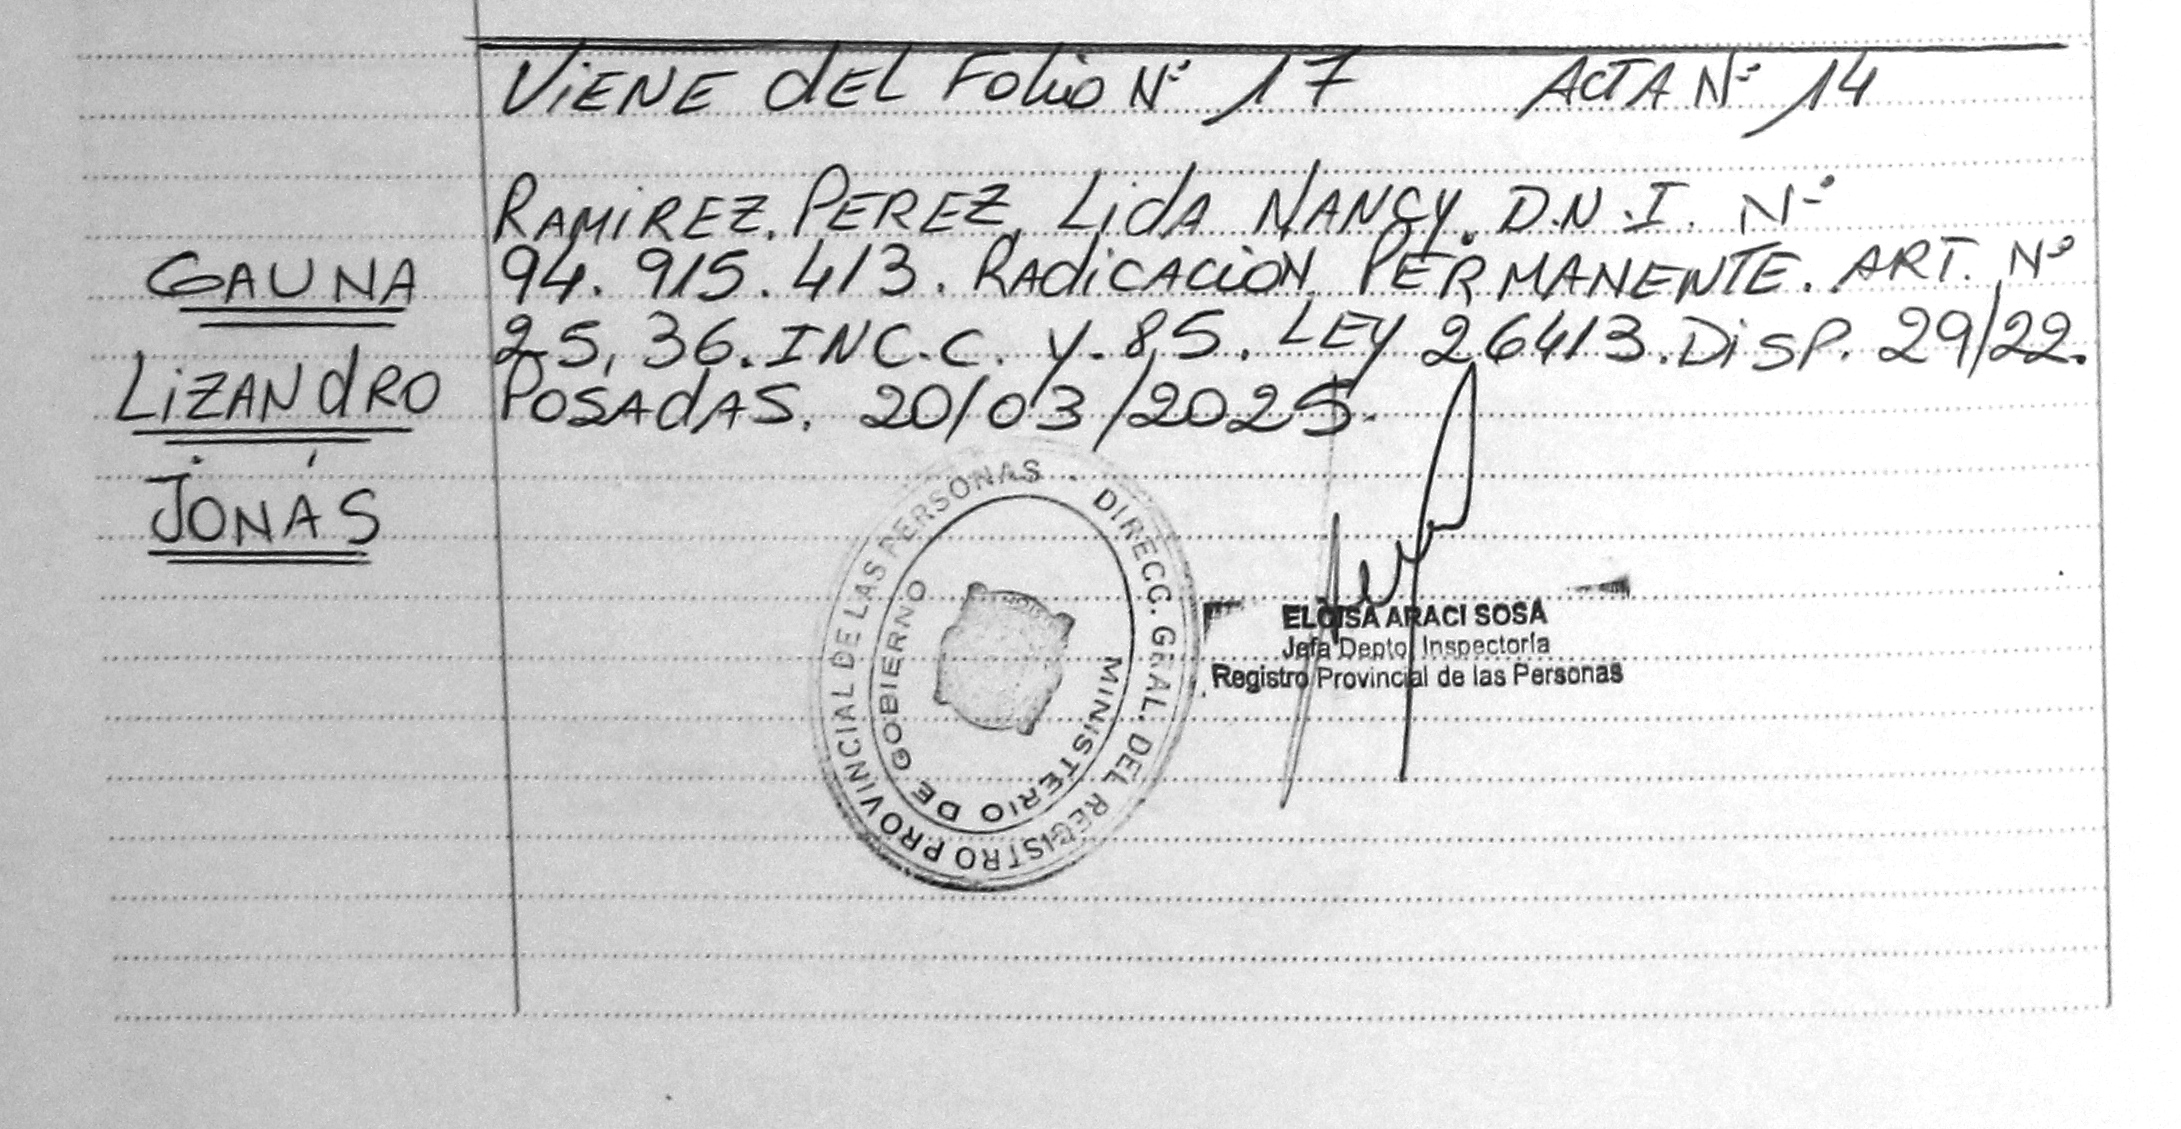 ViENE dEL Folio Nº 17 ACTA Nº 14
RAMIREZ. PEREZ, LidA NANCY. D.N.I. Nº
94.915.413. RAdicAcioN PERMANENTE. ART. Nº
25, 36. INC.C. Y. 85. LEY 26413. DiSP. 29/22.
POSAdAS, 20/03/2025.
GAUNA
LiZANdRO
JONÁS
DIRECC. GRAL. DEL REGISTRO PROVINCIAL DE LAS PERSONAS
MINISTERIO DE GOBIERNO
ELOISA ARACI SOSA
Jefa Depto Inspectoría
Registro Provincial de las Personas